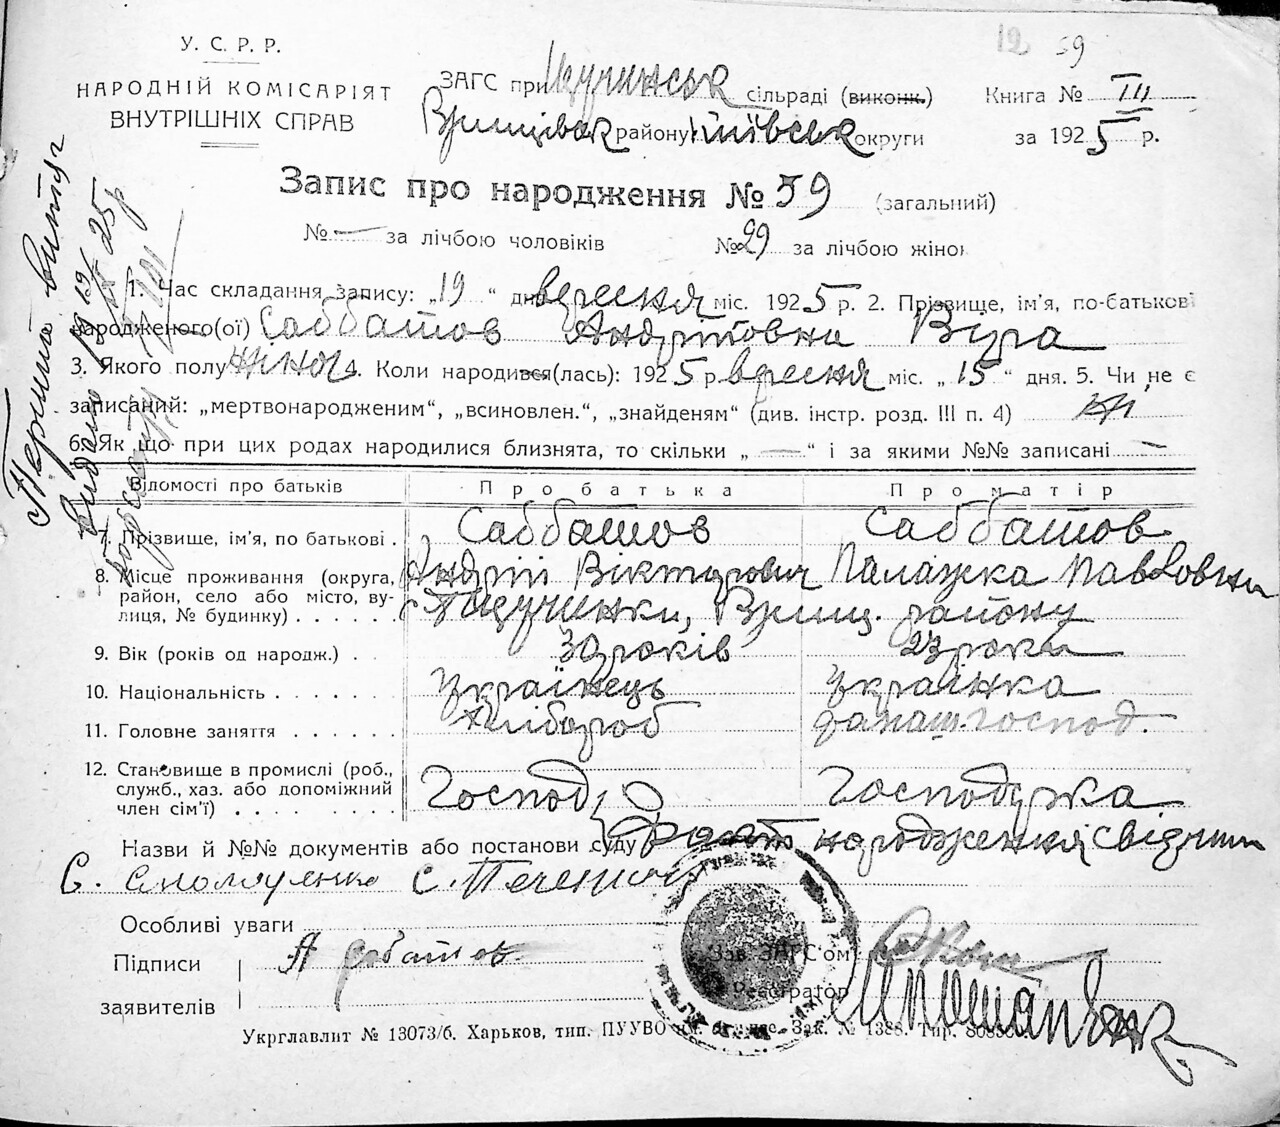 12 59
У. С. Р. Р.
НАРОДНІЙ КОМІСАРІЯТ
ВНУТРІШНІХ СПРАВ
ЗАГС при сільраді (виконк.) Книга № III
району Київськ округи за 1925 р.
Запис про народження № 59 (загальний)
№ — за лічбою чоловіків № 29 за лічбою жінок
1. Час складання запису: „19“ дня вересня міс. 1925 р. 2. Прізвище, ім'я, по-батькові
народженого(ої) Саббатов Андріївна Віра
3. Якого полу жіноч 4. Коли народився(лась): 1925 р. вересня міс. „15“ дня. 5. Чи не є
записаний: „мертвонародженим“, „всиновлен.“, „знайденям“ (див. інстр. розд. III п. 4) ні
6. Як що при цих родах народилися близнята, то скільки „—“ і за якими №№ записані —
Відомості про батьків Про батька Про матір
7. Прізвище, ім'я, по батькові . Саббатов Саббатов
Андрій Вікторович Палажка Павловна
8. Місце проживання (округа, район, село або місто, вулиця, № будинку) . . . . . . с. району
9. Вік (років од народж.) . . 30 років 23 роки
10. Національність . . . . . . . Українець Українка
11. Головне заняття . . . . . . Хлібороб домаш. господ.
12. Становище в промислі (роб., служб., хаз. або допоміжний член сім'ї) . . . . . . . . Господ Господужка
Назви й №№ документів або постанови суду факт народження свідчит
С. с.
Особливі уваги
Підписи заявителів А Сабатов
Зав. ЗАГС'ом
Реєстратор
Укрглавлит № 13073/б. Харьков, тип. ПУУВО Зак. № 1388. Тир.
Перший витяг
видано 19/IX 25 р